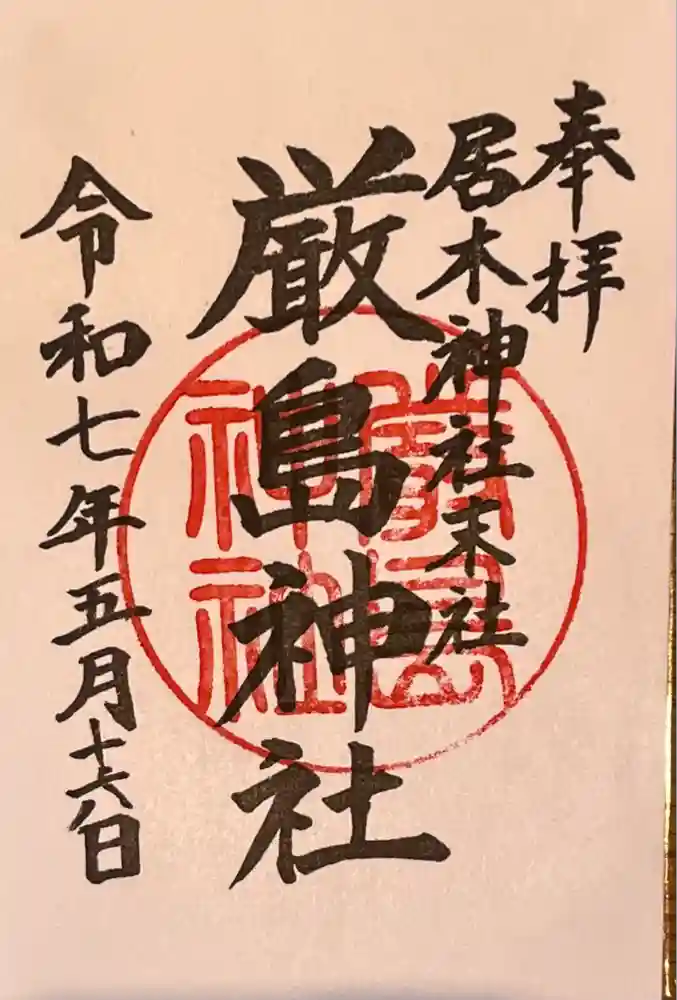 奉拝
居木神社末社
厳島神社
嚴島
神社
令和七年五月十六日